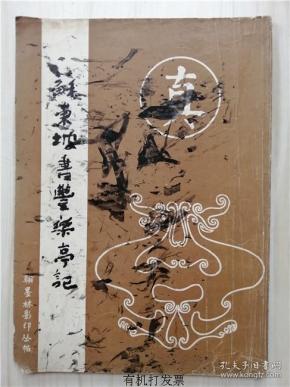 蘇東坡書豐樂亭記
翰墨林影印丛帖
孔夫子旧书网
有机打发票